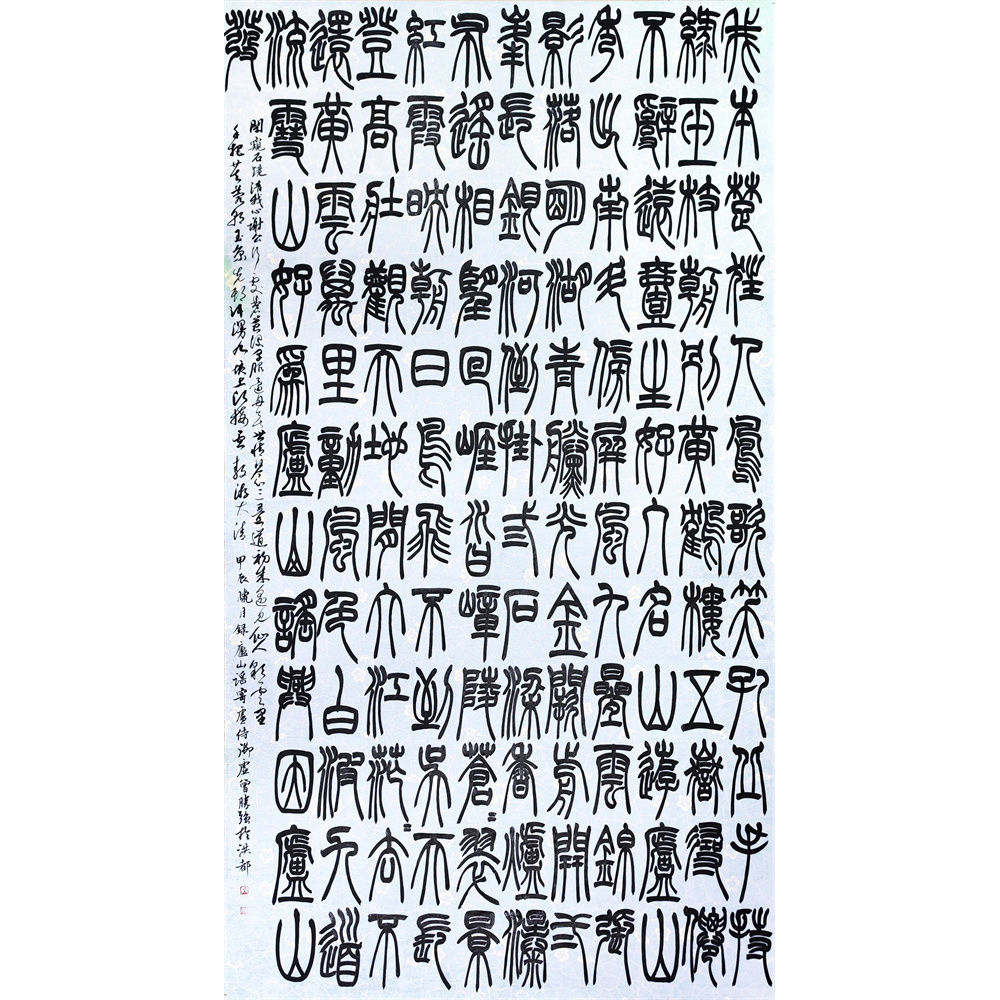 我本楚狂人鳳歌笑孔丘手持
綠玉杖朝別黃鶴樓五嶽尋仙
不辭遠壹生好入名山遊廬山
秀出南斗傍屏風九疊雲錦張
影落明湖青黛光金闕前開二
峯長銀河倒掛三石梁香爐瀑
布遙相望迴崖沓嶂陵蒼=翠景
紅霞映朝日鳥飛不到吳天長
登高壯觀天地間大江茫=去不
還黃雲萬里動風色白波九道
流雪山好為廬山謠興因廬山
發
閑窺石鏡清我心謝公行處蒼苔沒早服還丹無世情琴心三疊道初成遙見仙人彩雲里
手把芙蓉朝玉京先期汗漫九垓上願接盧敖遊太清 甲辰臘月錄廬山謠寄盧侍御虛曾勝強於洪都